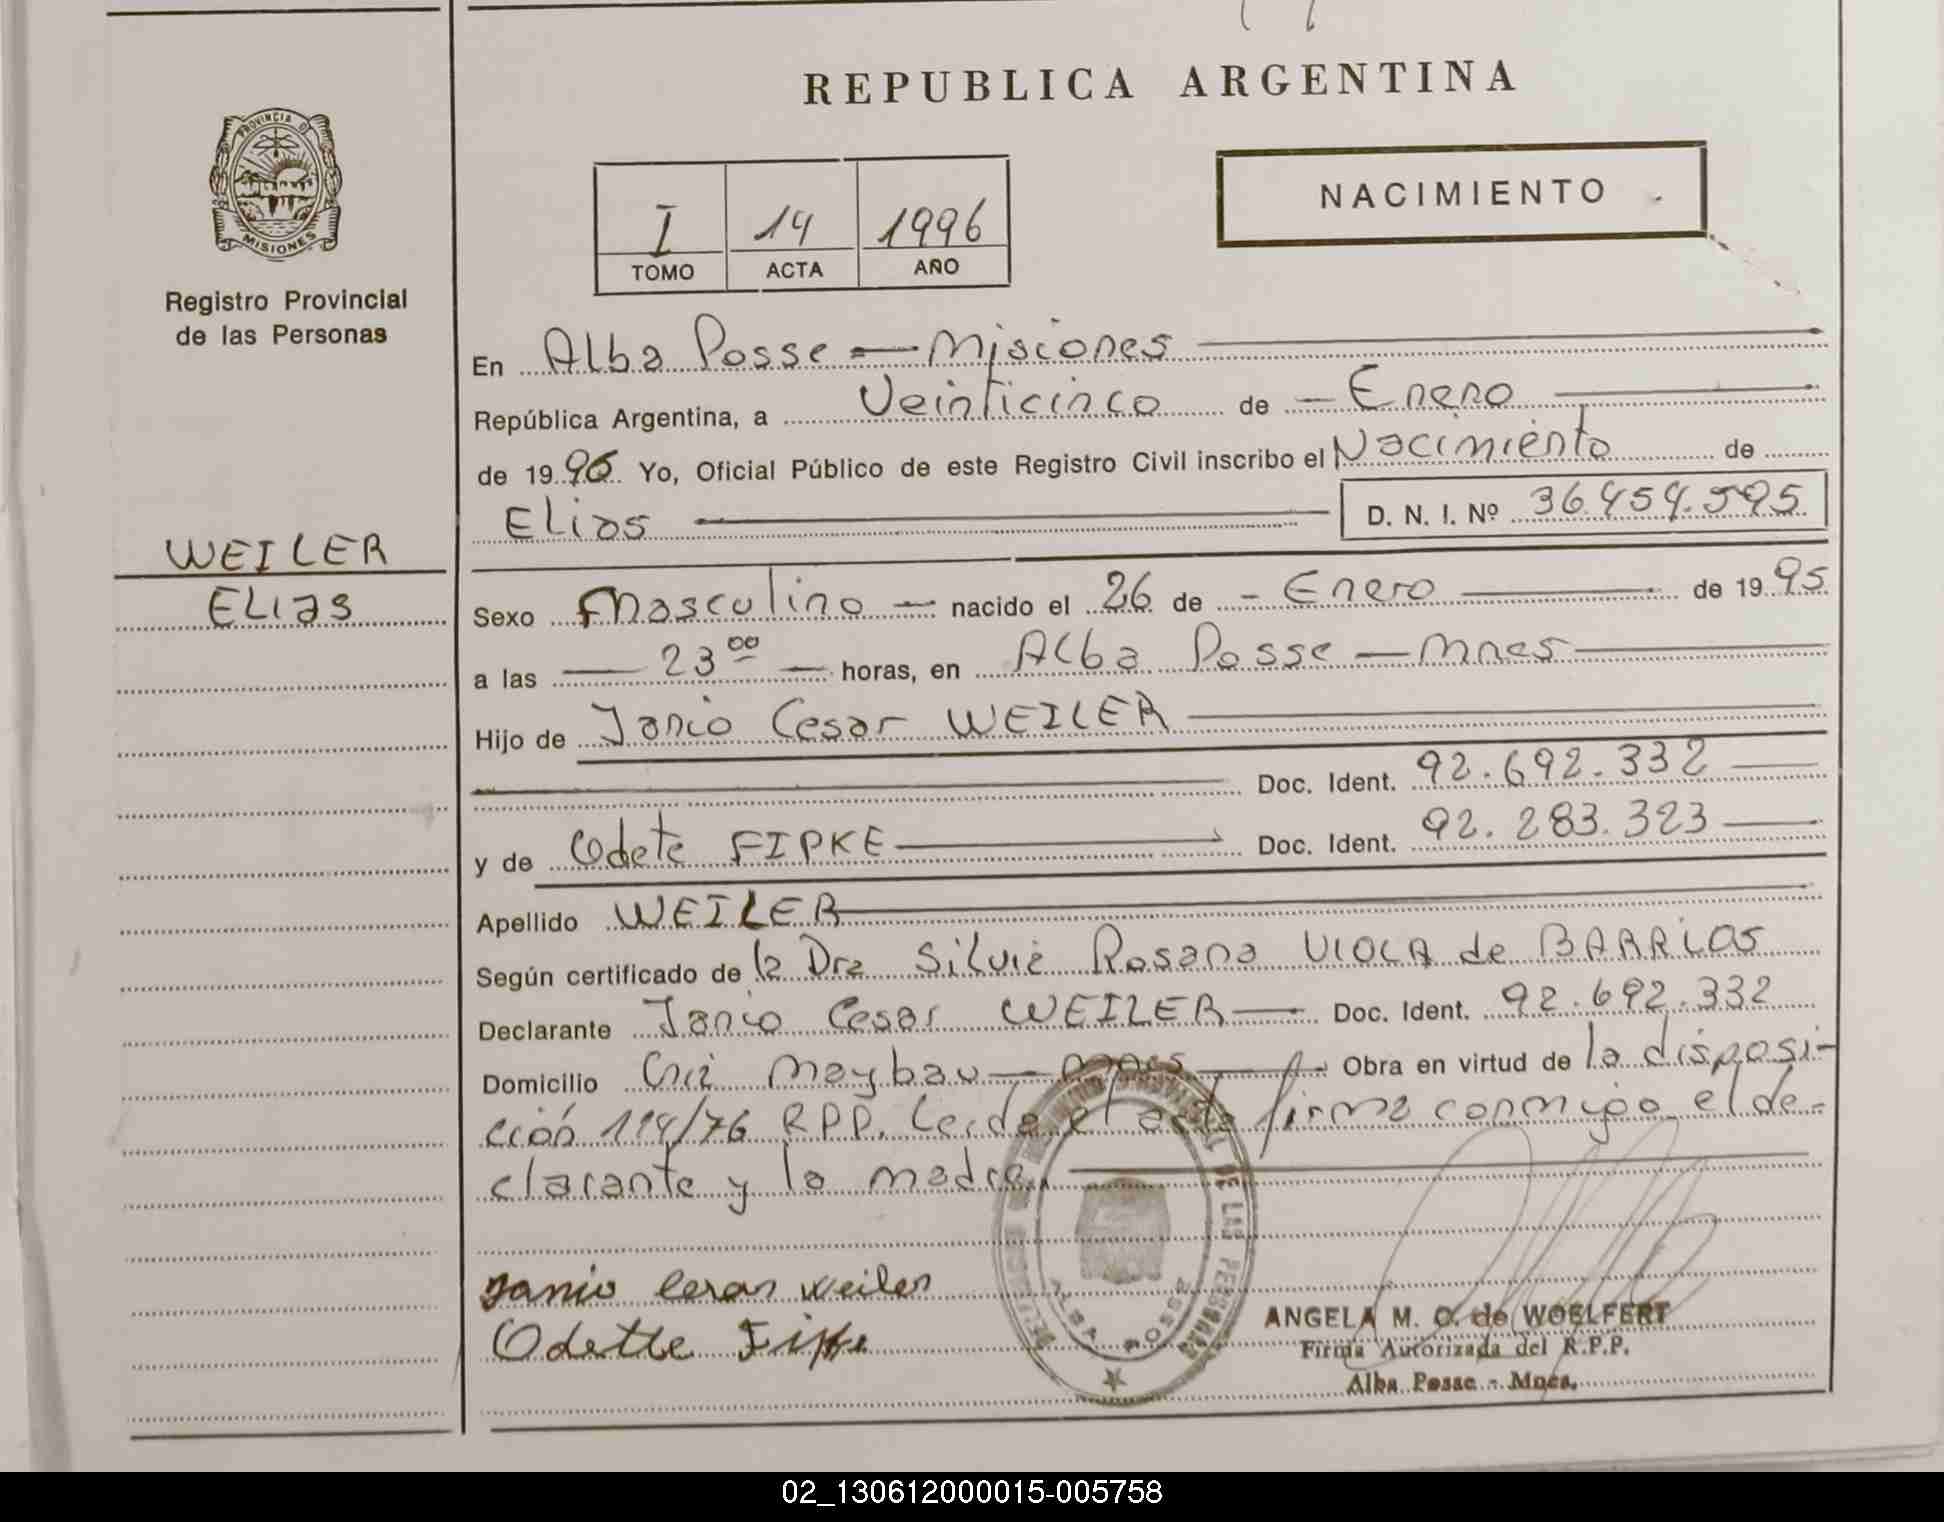 REPUBLICA ARGENTINA
PROVINCIA D
MISIONES
Registro Provincial
de las Personas
NACIMIENTO
I 14 1996
TOMO ACTA AÑO
En Alba Posse - Misiones
República Argentina, a Veinticinco de - Enero
de 1996 Yo, Oficial Público de este Registro Civil inscribo el Nacimiento de
Elias D. N. I. Nº 36.454.595
WEILER
ELias
Sexo Masculino - nacido el 26 de - Enero de 1995
a las 23 00 - horas, en Alba Posse - Mnes
Hijo de Janio Cesar WEILER
Doc. Ident. 92.692.332
y de Odete FIPKE Doc. Ident. 92.283.323
Apellido WEILER
Según certificado de la Dra Silvia Rosana VIOLA de BARRIOS
Declarante Janio Cesar WEILER Doc. Ident. 92.692.332
Domicilio - Mnes Obra en virtud de la disposi-
ción 114/76 RPP. Leida el acta firma conmigo el de-
clarante y la madre.
DE LAS PERSONAS
ALBA POSSE
Janio Cesar Weiler
Odette Fipke
ANGELA M. O. de WOELFERT
Firma Autorizada del R.P.P.
Alba Posse - Mnes.
02_130612000015-005758